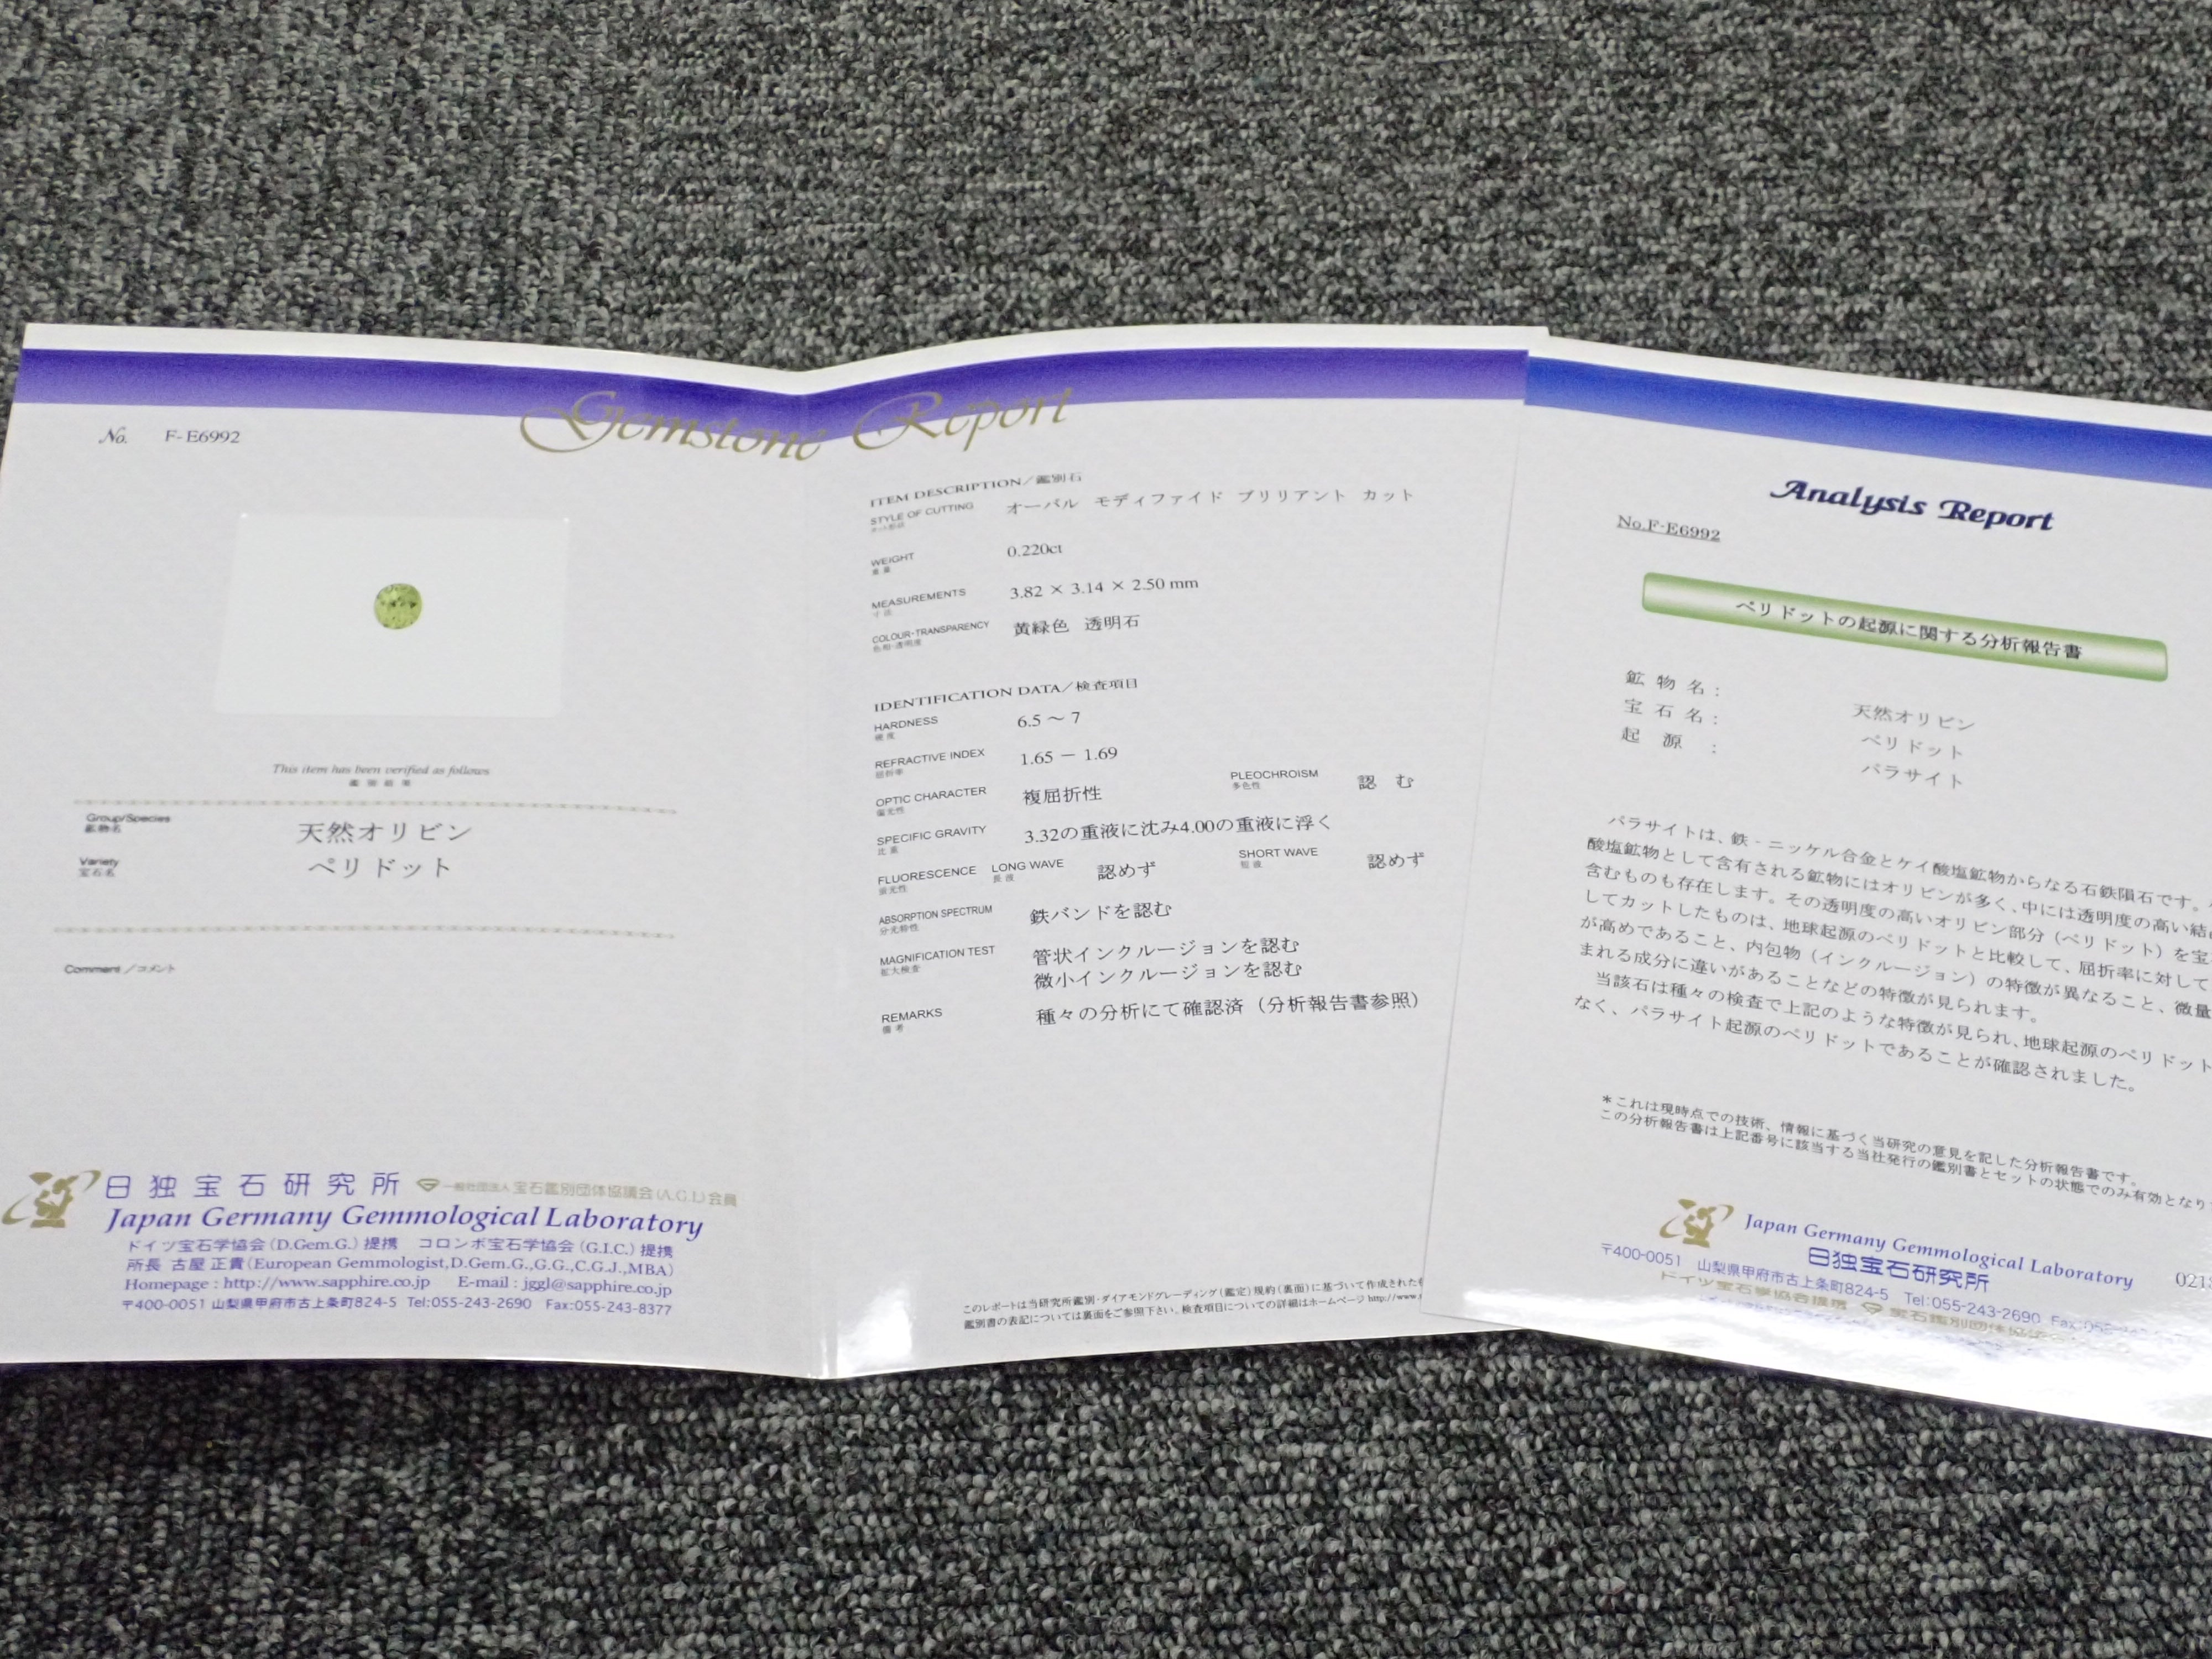 Gemstone Report
No. F-E6992
This item has been verified as follows
鑑別結果
Group/Species
鉱物名
天然オリビン
Variety
宝石名
ペリドット
Comment/コメント
日独宝石研究所
一般社団法人 宝石鑑別団体協議会(A.G.L)会員
Japan Germany Gemmological Laboratory
ドイツ宝石学協会(D.Gem.G.)提携 コロンボ宝石学協会(G.I.C.)提携
所長 古屋 正貴(European Gemmologist,D.Gem.G.,G.G.,C.G.J.,MBA)
Homepage : http://www.sapphire.co.jp E-mail : jggl@sapphire.co.jp
〒400-0051 山梨県甲府市古上条町824-5 Tel:055-243-2690 Fax:055-243-8377
ITEM DESCRIPTION/鑑別石
STYLE OF CUTTING オーバル モディファイド ブリリアント カット
WEIGHT 0.220ct
重量
MEASUREMENTS 3.82 × 3.14 × 2.50 mm
寸法
COLOUR・TRANSPARENCY 黄緑色 透明石
色相・透明度
IDENTIFICATION DATA/検査項目
HARDNESS 6.5 ～ 7
硬度
REFRACTIVE INDEX 1.65 － 1.69
屈折率
OPTIC CHARACTER 複屈折性 PLEOCHROISM 認 む
偏光性 多色性
SPECIFIC GRAVITY 3.32の重液に沈み4.00の重液に浮く
比重
FLUORESCENCE LONG WAVE 認めず SHORT WAVE 認めず
蛍光性 長波 短波
ABSORPTION SPECTRUM 鉄バンドを認む
分光特性
MAGNIFICATION TEST 管状インクルージョンを認む
拡大検査 微小インクルージョンを認む
REMARKS 種々の分析にて確認済（分析報告書参照）
備考
このレポートは当研究所鑑別・ダイアモンドグレーディング(鑑定)規約(裏面)に基づいて作成された
鑑別書の表記については裏面をご参照下さい。検査項目についての詳細はホームページ http://www.
Analysis Report
No.F-E6992
ペリドットの起源に関する分析報告書
鉱 物 名 : 天然オリビン
宝 石 名 : ペリドット
起 源 : パラサイト
パラサイトは、鉄‐ニッケル合金とケイ酸塩鉱物からなる石鉄隕石です。
酸塩鉱物として含有される鉱物にはオリビンが多く、中には透明度の高い結
含むものも存在します。その透明度の高いオリビン部分（ペリドット）を宝
してカットしたものは、地球起源のペリドットと比較して、屈折率に対して
が高めであること、内包物（インクルージョン）の特徴が異なること、微量
まれる成分に違いがあることなどの特徴が見られます。
当該石は種々の検査で上記のような特徴が見られ、地球起源のペリドット
なく、パラサイト起源のペリドットであることが確認されました。
＊これは現時点での技術、情報に基づく当研究の意見を記した分析報告書です。
この分析報告書は上記番号に該当する当社発行の鑑別書とセットの状態でのみ有効となり
Japan Germany Gemmological Laboratory
日独宝石研究所
021
〒400-0051 山梨県甲府市古上条町824-5 Tel:055-243-2690 Fax:055
ドイツ宝石学協会提携 宝石鑑別団体協